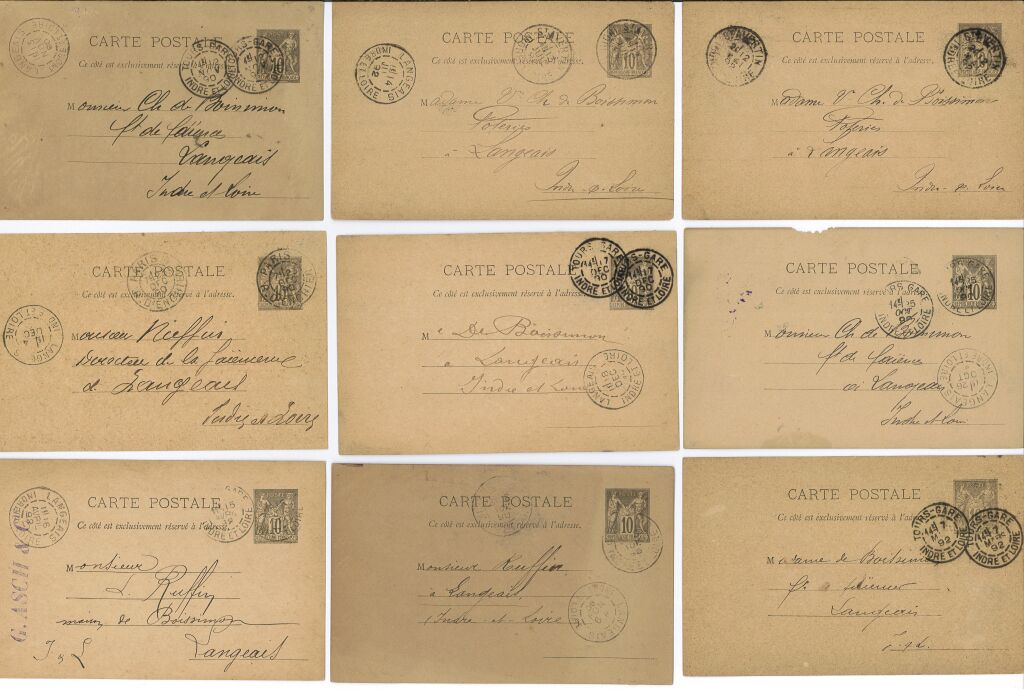 CARTE POSTALE
Ce côté est exclusivement réservé à l'adresse.
TOURS-GARE
INDRE ET LOIRE
10
Monsieur Ch. de Boissimon
ft de faïence
Langeais
Indre et Loire
CARTE POSTALE
Ce côté est exclusivement réservé à l'adresse.
LANGEAIS
INDRE ET LOIRE
92
10
Madame Ve Ch de Boissimon
Poteries
à Langeais
Indre-&-Loire
CARTE POSTALE
Ce côté est exclusivement réservé à l'adresse.
Madame Ve Ch. de Boissimon
Poteries
à Langeais
Indre-&-Loire
CARTE POSTALE
Ce côté est exclusivement réservé à l'adresse.
PARIS
Monsieur Rieffin
Directeur de la faïencerie
de Langeais
Indre et Loire
CARTE POSTALE
Ce côté est exclusivement réservé à l'adresse.
TOURS-GARE
17
DEC
90
INDRE ET LOIRE
M De Boissimon
à Langeais
Indre et Loire
LANGEAIS
INDRE ET LOIRE
CARTE POSTALE
Ce côté est exclusivement réservé à l'adresse.
TOURS GARE
INDRE ET LOIRE
10
Monsieur Ch de Boissimon
ft de faïence
à Langeais
Indre et Loire
LANGEAIS
CARTE POSTALE
Ce côté est exclusivement réservé à l'adresse.
LANGEAIS
10
G. ASCH &
Monsieur
Ruffin
maison de Boissimon
I & L Langeais
CARTE POSTALE
Ce côté est exclusivement réservé à l'adresse.
10
Monsieur Rieffin
à Langeais
Indre-et-Loire
CARTE POSTALE
Ce côté est exclusivement réservé à l'adresse.
TOURS-GARE
7
92
INDRE ET LOIRE
Madame de Boissimon
Langeais